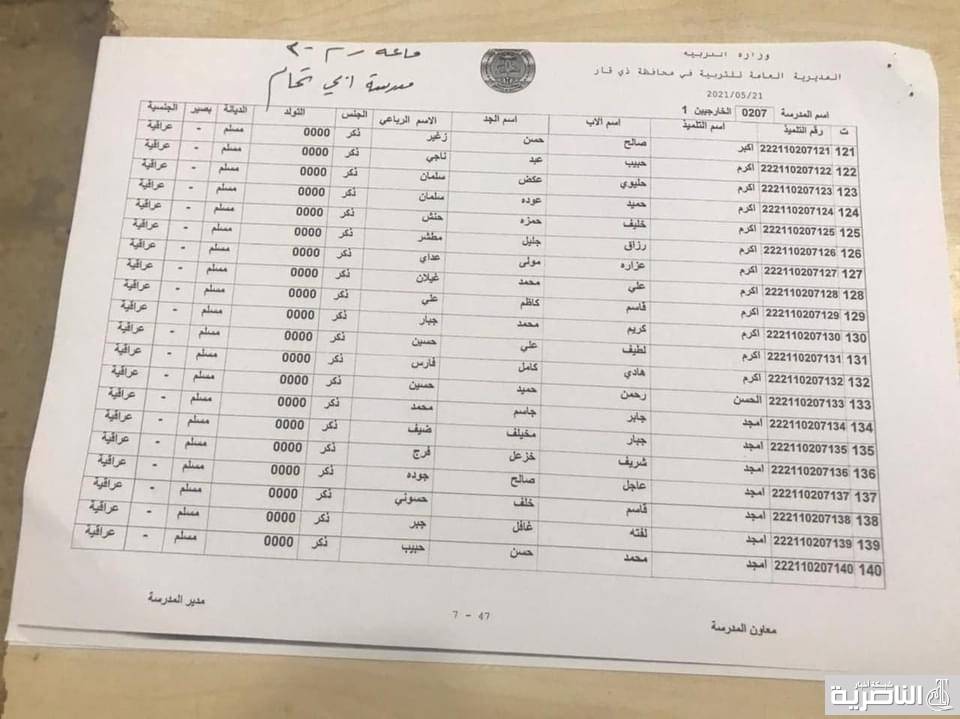 وزارة التربية
المديرية العامة للتربية في محافظة ذي قار
2021/05/21
قاعة رقم - ٢
مدرسة ابي تمام
اسم المدرسة 0207 الخارجيين 1
ت رقم التلميذ اسم التلميذ اسم الاب اسم الجد الاسم الرباعي الجنس التولد الديانة بصير الجنسية
121 222110207121 اكبر صالح حسن زغير ذكر 0000 مسلم - عراقية
122 222110207122 اكرم حبيب عبد ناجي ذكر 0000 مسلم - عراقية
123 222110207123 اكرم حليوي عكض سلمان ذكر 0000 مسلم - عراقية
124 222110207124 اكرم حميد عوده سلمان ذكر 0000 مسلم - عراقية
125 222110207125 اكرم خليف حمزه حنش ذكر 0000 مسلم - عراقية
126 222110207126 اكرم رزاق جليل مطشر ذكر 0000 مسلم - عراقية
127 222110207127 اكرم عزاره مولى عداي ذكر 0000 مسلم - عراقية
128 222110207128 اكرم علي محمد غيلان ذكر 0000 مسلم - عراقية
129 222110207129 اكرم قاسم كاظم علي ذكر 0000 مسلم - عراقية
130 222110207130 اكرم كريم محمد جبار ذكر 0000 مسلم - عراقية
131 222110207131 اكرم لطيف علي حسين ذكر 0000 مسلم - عراقية
132 222110207132 اكرم هادي كامل فارس ذكر 0000 مسلم - عراقية
133 222110207133 الحسن رحمن حميد حسين ذكر 0000 مسلم - عراقية
134 222110207134 امجد جابر جاسم محمد ذكر 0000 مسلم - عراقية
135 222110207135 امجد جبار مخيلف ضيف ذكر 0000 مسلم - عراقية
136 222110207136 امجد شريف خزعل فرج ذكر 0000 مسلم - عراقية
137 222110207137 امجد عاجل صالح جوده ذكر 0000 مسلم - عراقية
138 222110207138 امجد قاسم خلف حسوني ذكر 0000 مسلم - عراقية
139 222110207139 امجد لفته غافل جبر ذكر 0000 مسلم - عراقية
140 222110207140 امجد محمد حسن حبيب ذكر 0000 مسلم - عراقية
معاون المدرسة
7 - 47
مدير المدرسة
شبكة أخبار
الناصرية